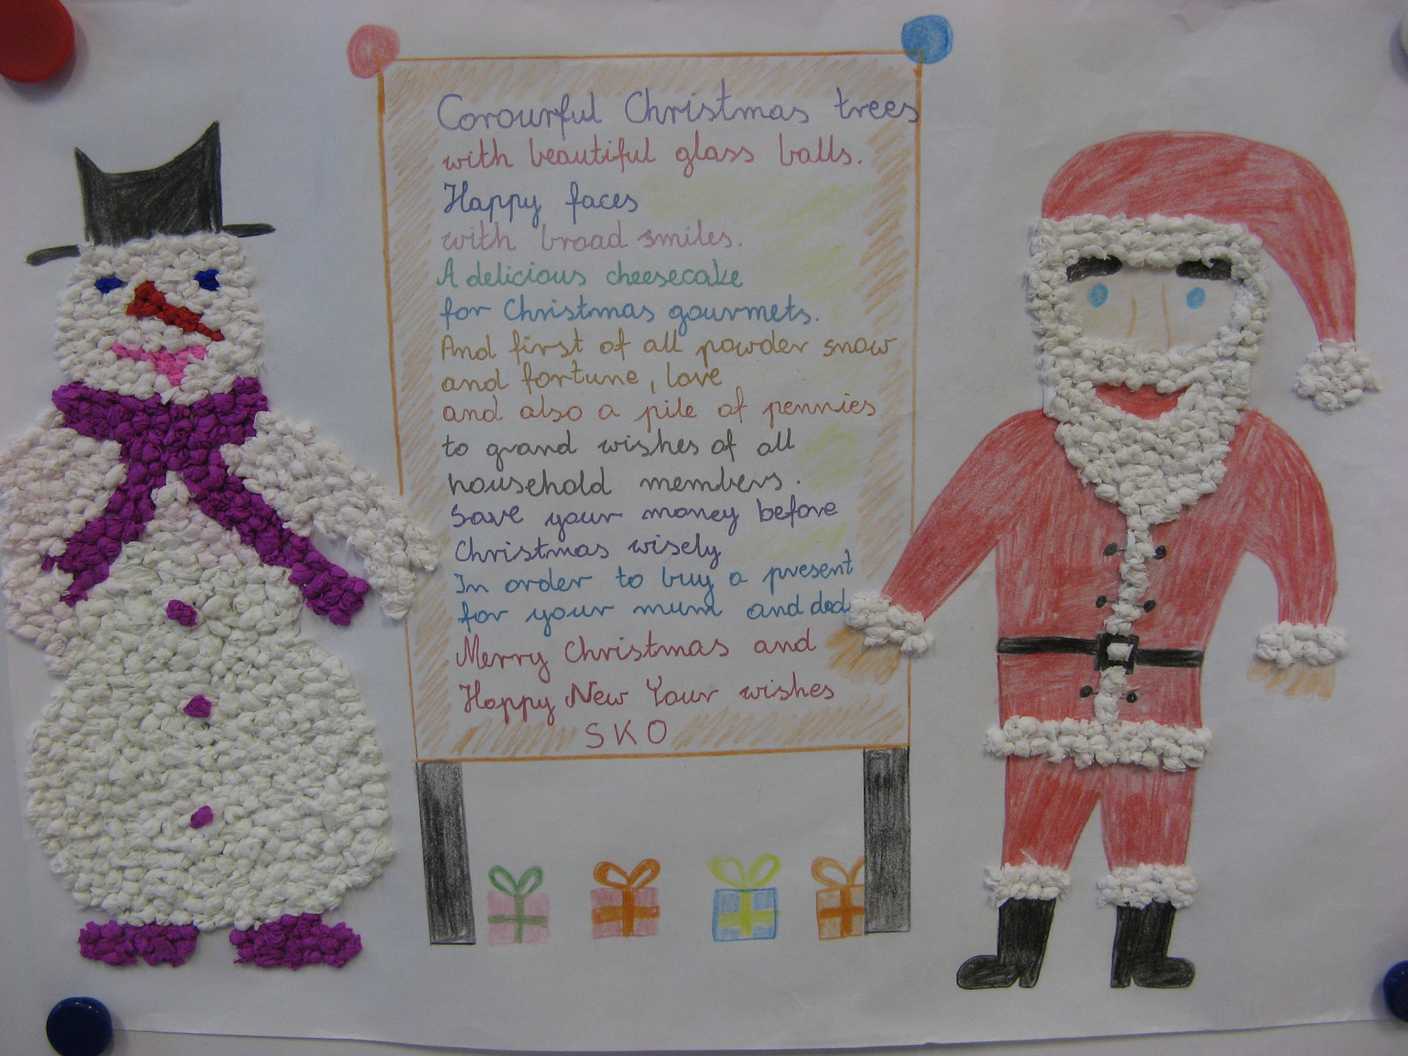 Corourful Christmas trees
with beautiful glass balls.
Happy faces
with broad smiles.
A delicious cheesecake
for Christmas gourmets.
And first of all powder snow
and fortune, love
and also a pile of pennies
to grand wishes of all
household members.
Save your money before
Christmas wisely
In order to buy a present
for your mum and dad
Merry Christmas and
Happy New Your wishes
SKO